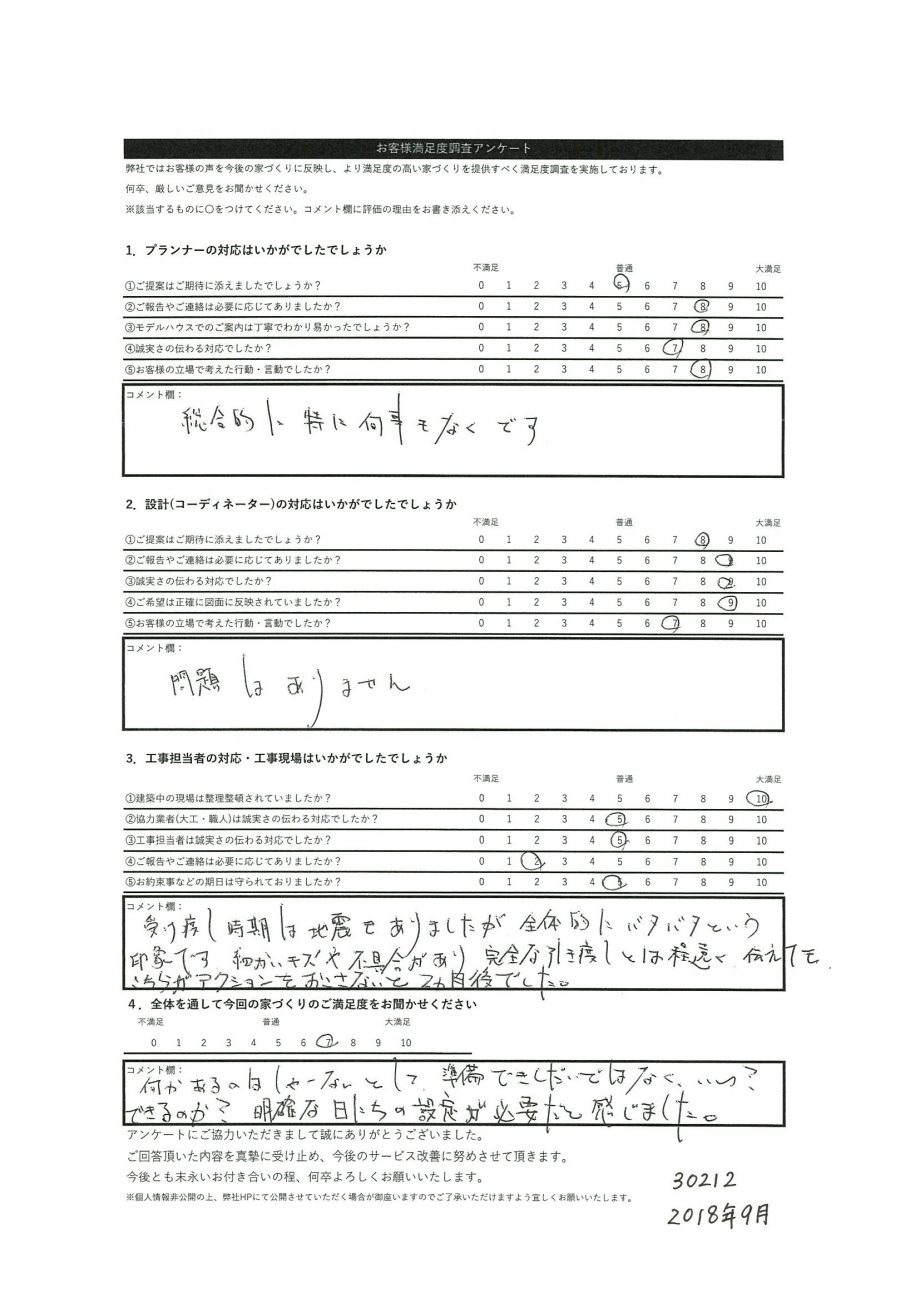 お客様満足度調査アンケート
弊社ではお客様の声を今後の家づくりに反映し、より満足度の高い家づくりを提供すべく満足度調査を実施しております。
何卒、厳しいご意見をお聞かせください。
※該当するものに〇をつけてください。コメント欄に評価の理由をお書き添えください。
1．プランナーの対応はいかがでしたでしょうか
不満足 普通 大満足
①ご提案はご期待に添えましたでしょうか？ 0 1 2 3 4 5 6 7 8 9 10
②ご報告やご連絡は必要に応じてありましたか？ 0 1 2 3 4 5 6 7 8 9 10
③モデルハウスでのご案内は丁寧でわかり易かったでしょうか？ 0 1 2 3 4 5 6 7 8 9 10
④誠実さの伝わる対応でしたか？ 0 1 2 3 4 5 6 7 8 9 10
⑤お客様の立場で考えた行動・言動でしたか？ 0 1 2 3 4 5 6 7 8 9 10
コメント欄：
総合的に特に何事もなくです
2．設計(コーディネーター)の対応はいかがでしたでしょうか
不満足 普通 大満足
①ご提案はご期待に添えましたでしょうか？ 0 1 2 3 4 5 6 7 8 9 10
②ご報告やご連絡は必要に応じてありましたか？ 0 1 2 3 4 5 6 7 8 9 10
③誠実さの伝わる対応でしたか？ 0 1 2 3 4 5 6 7 8 9 10
④ご希望は正確に図面に反映されていましたか？ 0 1 2 3 4 5 6 7 8 9 10
⑤お客様の立場で考えた行動・言動でしたか？ 0 1 2 3 4 5 6 7 8 9 10
コメント欄：
問題はありません
3．工事担当者の対応・工事現場はいかがでしたでしょうか
不満足 普通 大満足
①建築中の現場は整理整頓されていましたか？ 0 1 2 3 4 5 6 7 8 9 10
②協力業者(大工・職人)は誠実さの伝わる対応でしたか？ 0 1 2 3 4 5 6 7 8 9 10
③工事担当者は誠実さの伝わる対応でしたか？ 0 1 2 3 4 5 6 7 8 9 10
④ご報告やご連絡は必要に応じてありましたか？ 0 1 2 3 4 5 6 7 8 9 10
⑤お約束事などの期日は守られておりましたか？ 0 1 2 3 4 5 6 7 8 9 10
コメント欄：
受け渡し時期は地震もありましたが全体的にバタバタという
印象です 細かいキズや不具合があり 完全な引き渡しとは程遠く 伝えても
こちらがアクションをおこさないと 2ヵ月後でした。
4．全体を通して今回の家づくりのご満足度をお聞かせください
不満足 普通 大満足
0 1 2 3 4 5 6 7 8 9 10
コメント欄：
何かあるのはしゃーないとして、準備できしだいではなく、いつ？
できるのか？ 明確な日にちの設定が必要だと感じました。
アンケートにご協力いただきまして誠にありがとうございました。
ご回答頂いた内容を真摯に受け止め、今後のサービス改善に努めさせて頂きます。
今後とも末永いお付き合いの程、何卒よろしくお願いいたします。
※個人情報非公開の上、弊社HPにて公開させていただく場合が御座いますのでご了承いただけますよう宜しくお願いいたします。
30212
2018年9月